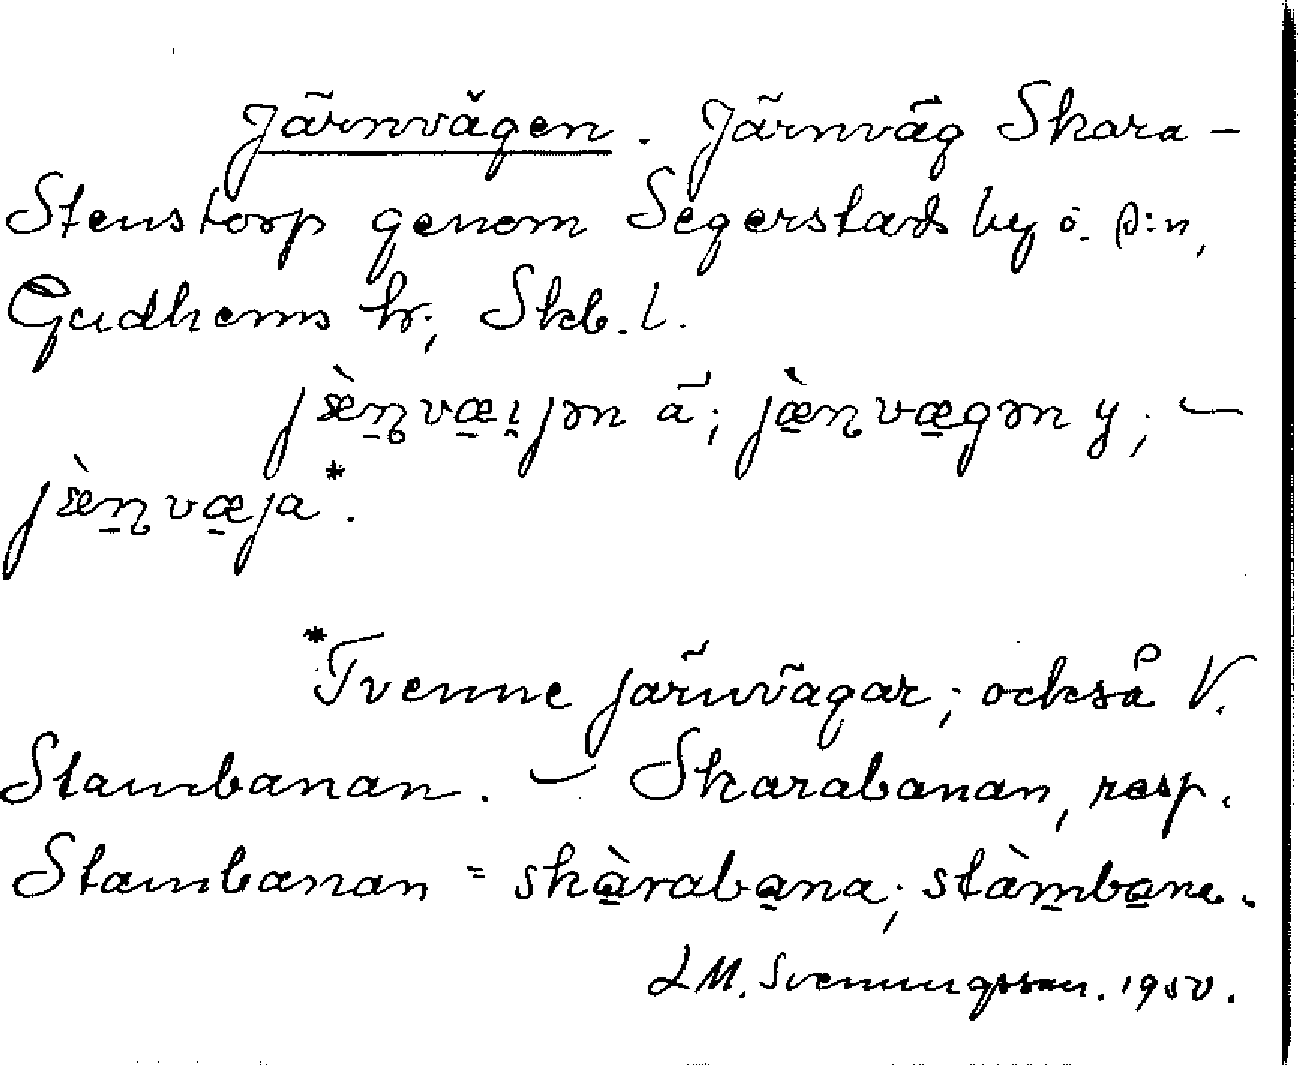 Järnvägen. Järnväg Skara –
Stenstorp genom Segerstads by o. s:n,
Gudhems hr, Skb. l.
jæ̀n̥væi̯jən ä; jæ̀nvægən y; –
jæ̀nvæja*.
*Tvenne järnvägar; också V.
Stambanan. – Skarabanan, resp.
Stambanan = skàrabana; stàmbana.
L M. Svenungsson. 1950.